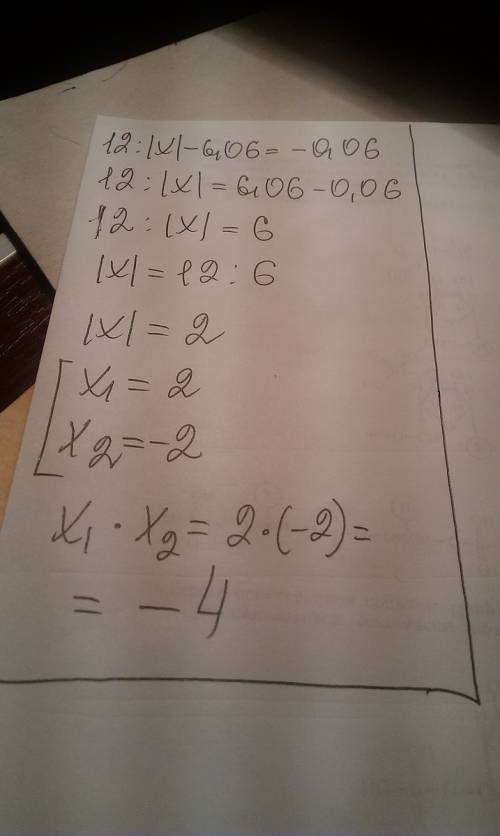 12:|x|-6,06=-0,06
12:|x|=6,06-0,06
12:|x|=6
|x|=12:6
|x|=2
x₁=2
x₂=-2
x₁·x₂=2·(-2)=
=-4